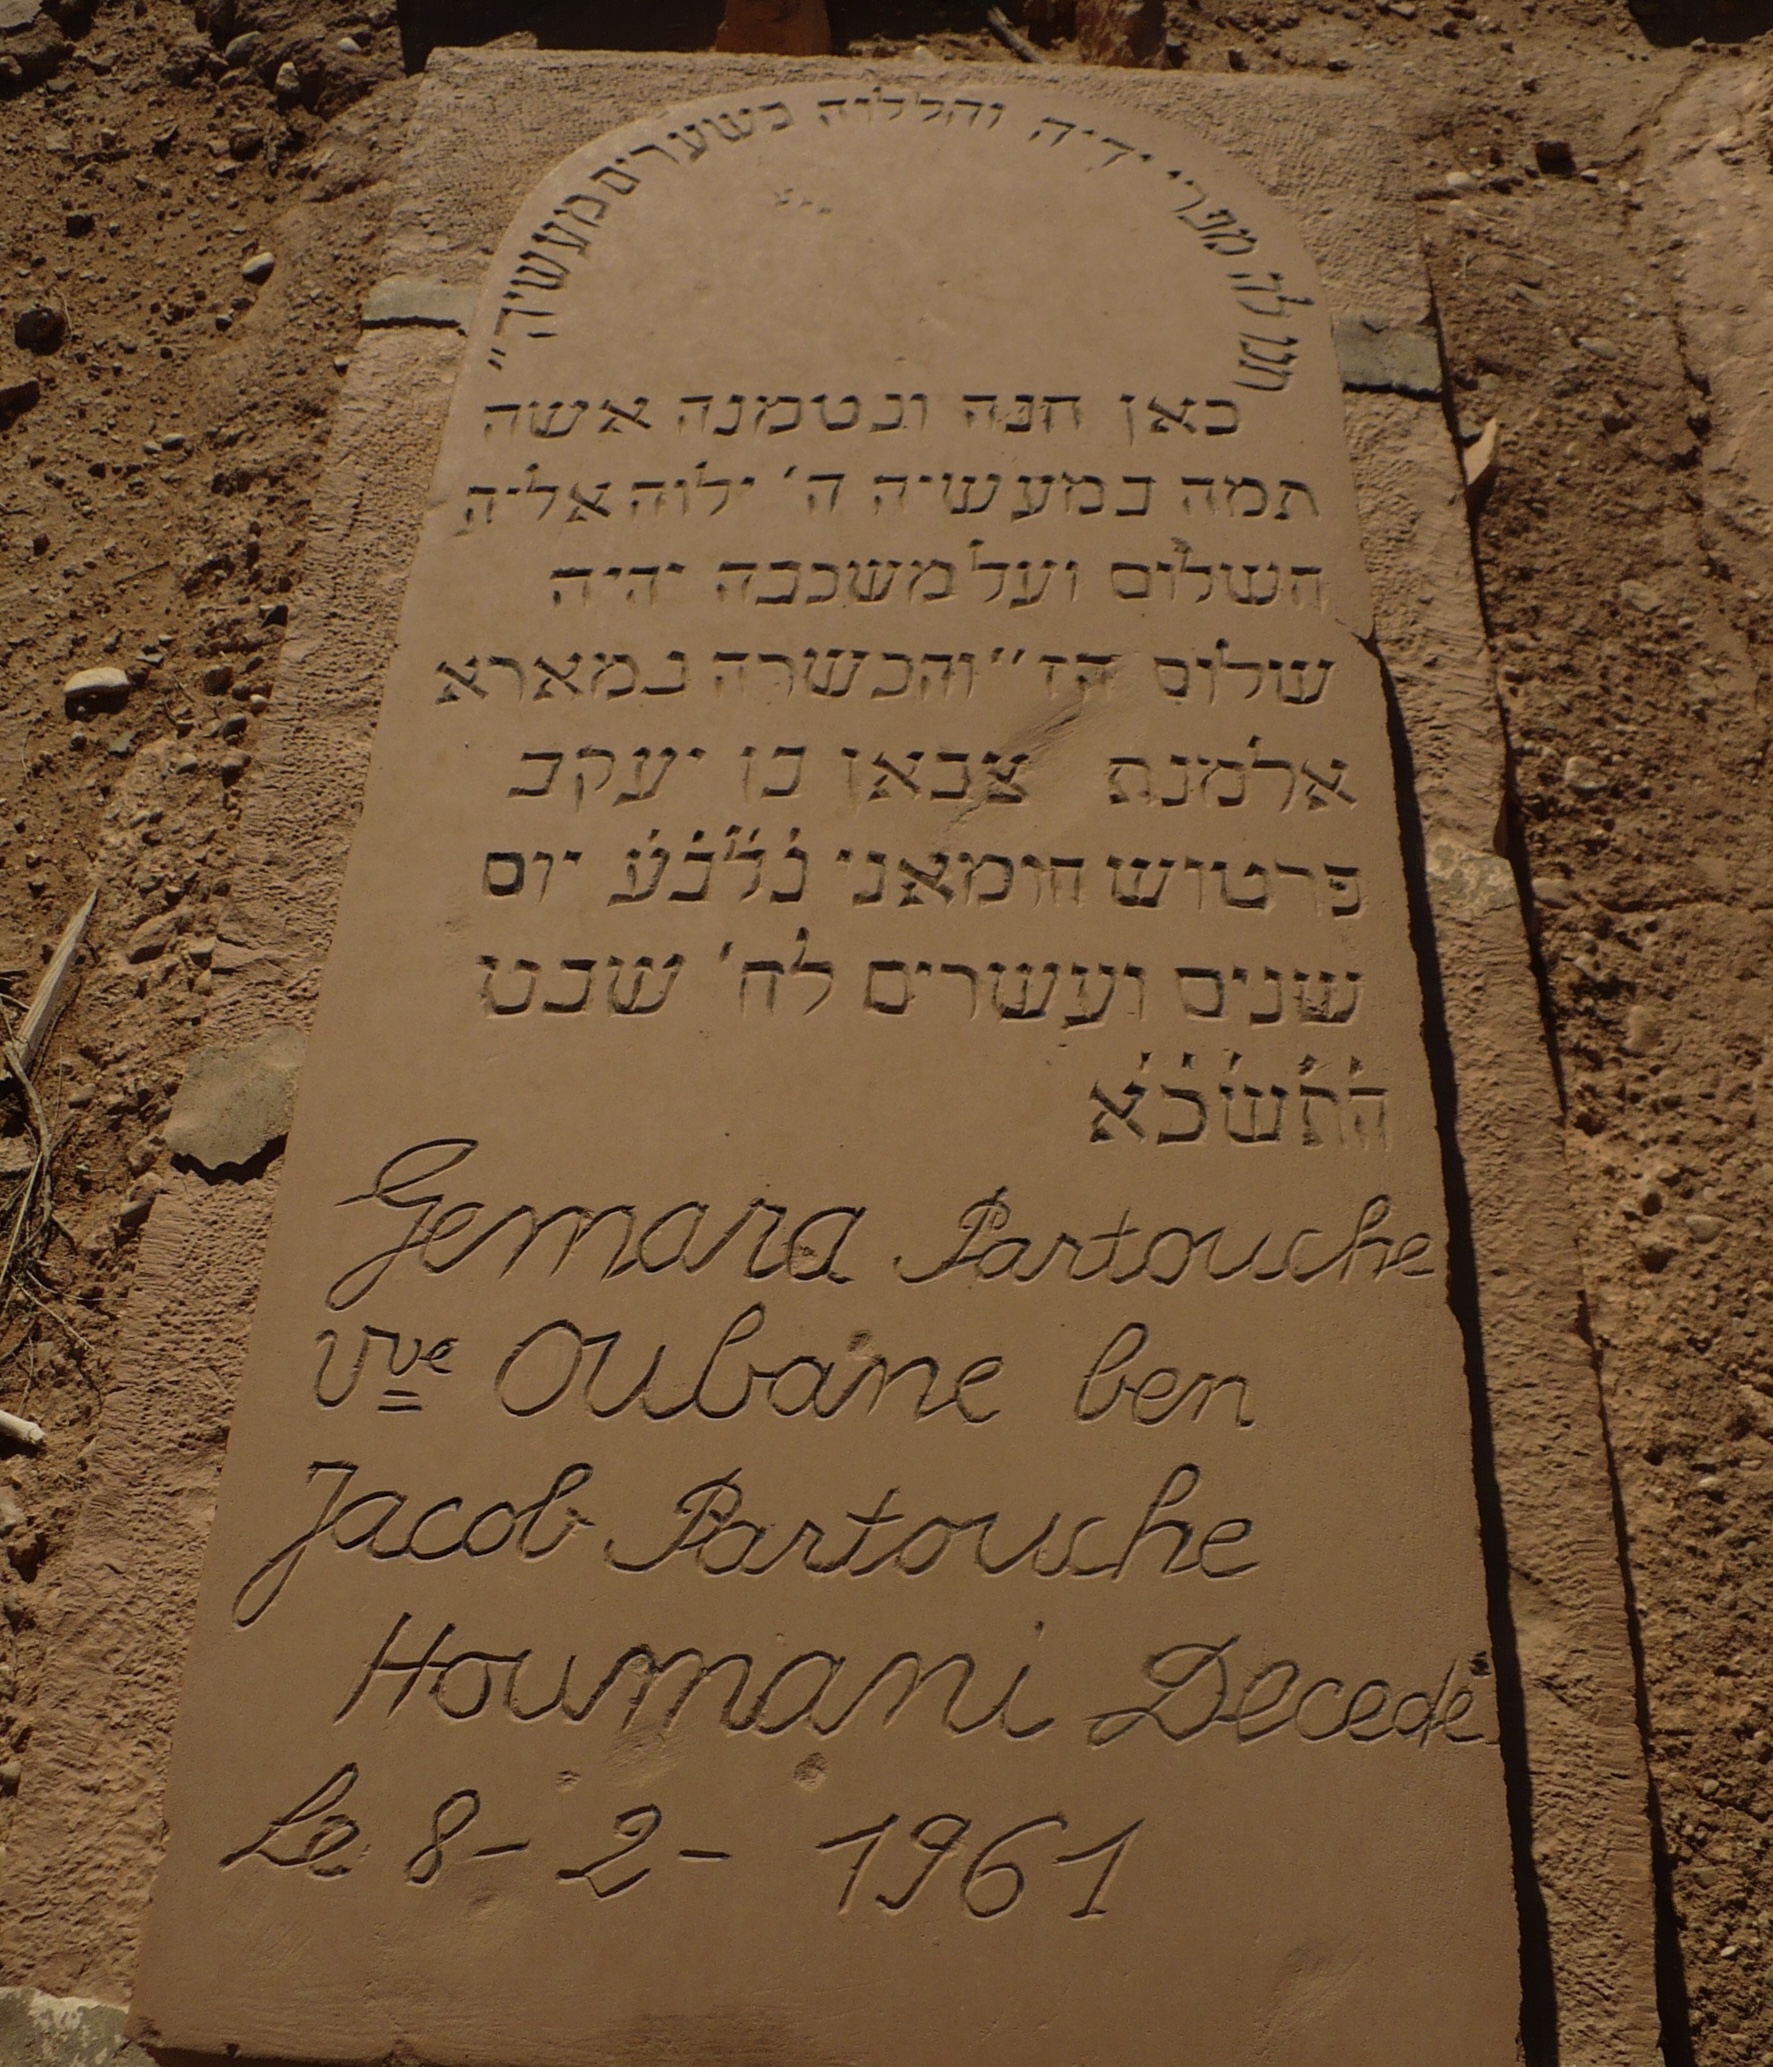 תנו לה מפרי ידיה והללוה בשערים מעשיה"
כאן חנה ונטמנה אשה
תמה במעשיה ה' ילוה אליה
השלום ועל משכבה יהיה
שלום הז"והכשרה גמארא
אלמנת צבאן בן יעקב
פרטוש חומאני נלבע יום
שנים ועשרים לח' שבט
התשכא
Gemara Partouche
Vve Oubane ben
Jacob Partouche
Houmani Decedé
Le 8-2-1961